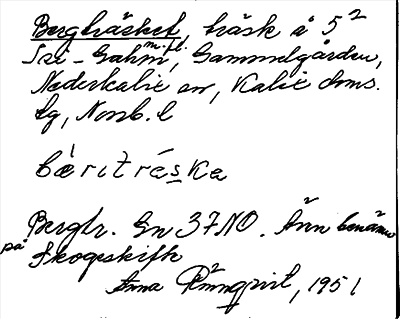 Bergträsket, träsk å 5²
Sai-Gahm m.fl., Gammelgården,
Nederkalix sn, Kalix doms.
lg, Norrb. l
bæritrásка
Bergtr. En 37 NO. Även benämn
på Skogsskifte
Anna Rönnqvist, 1951